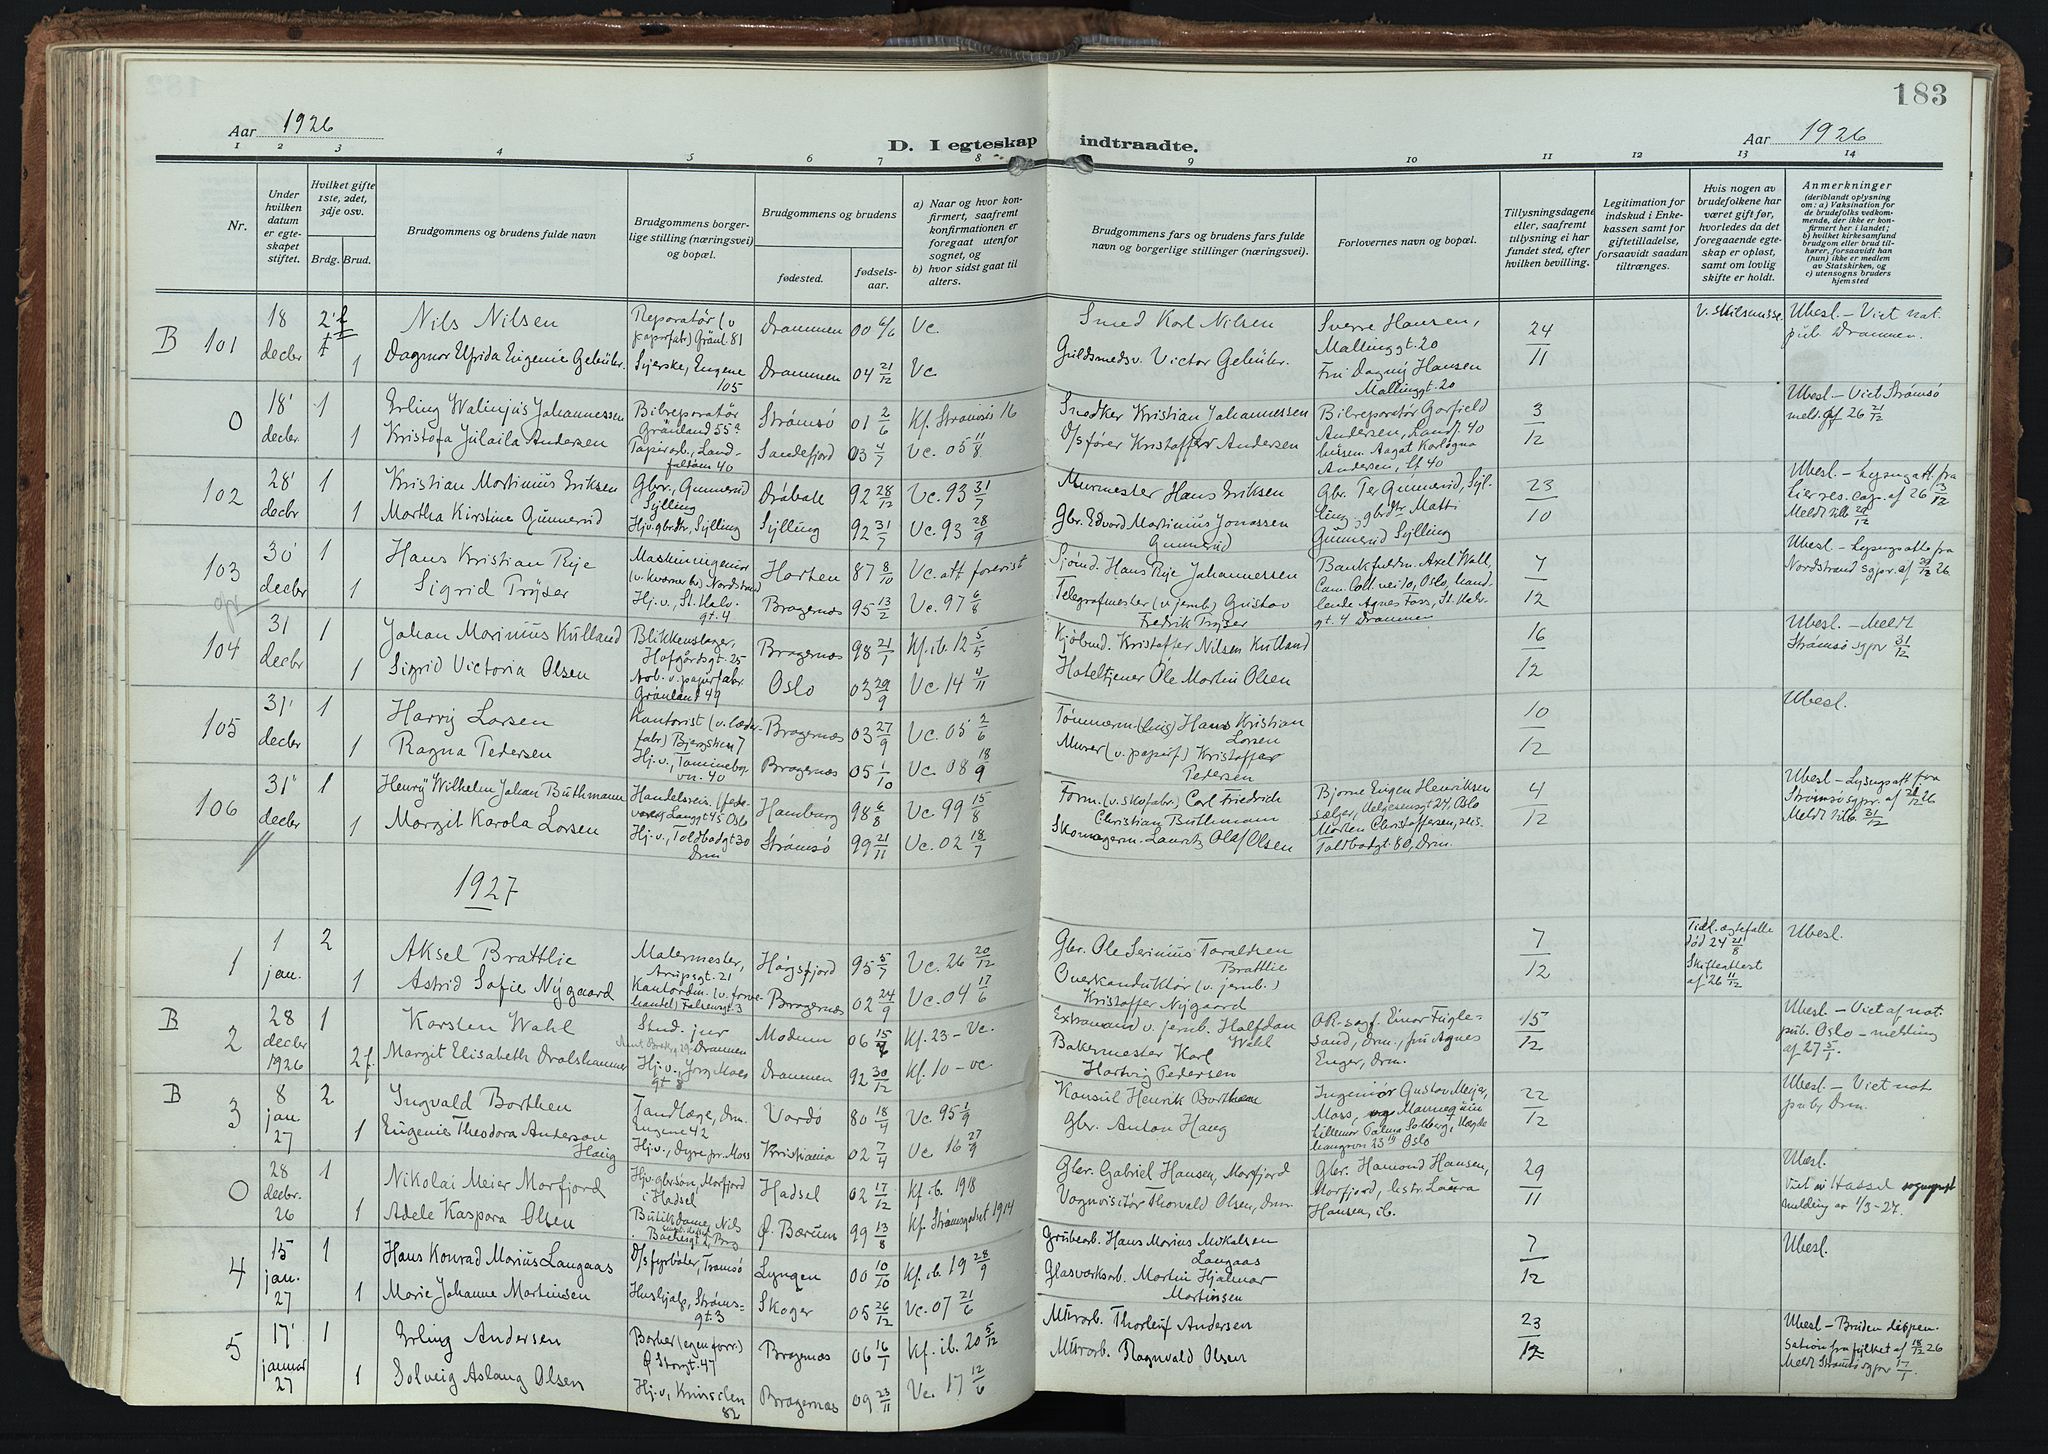 183
Aar 1926
D. I egteskap indtraadte.
Aar 1926
1 2 3 4 5 6 7 8 9 10 11 12 13 14
Nr.
Under hvilken datum er egteskapet stiftet.
Hvilket gifte 1ste, 2det, 3dje osv.
Brdg. Brud.
Brudgommens og brudens fulde navn
Brudgommens borgerlige stilling (næringsvei) og bopæl.
Brudgommens og brudens
fødested.
fødselsaar.
a) Naar og hvor konfirmert, saafremt konfirmationen er foregaat utenfor sognet, og
b) hvor sidst gaat til alters.
Brudgommens fars og brudens fars fulde navn og borgerlige stillinger (næringsvei).
Forlovernes navn og bopæl.
Tillysningsdagene eller, saafremt tillysning ei har fundet sted, efter hvilken bevilling.
Legitimation for indskud i Enkekassen samt for giftetilladelse, forsaavidt saadan tiltrænges.
Hvis nogen av brudefolkene har været gift før, hvorledes da det foregaaende egteskap er opløst, samt om lovlig skifte er holdt.
Anmerkninger
(deriblandt oplysning om: a) Vaksination for de brudefolks vedkommende, der ikke er konfirmert her i landet;
b) hvilket kirkesamfund brudgom eller brud tilhører, forsaavidt han (hun) ikke er medlem av Statskirken, og
c) utensogns bruders hjemsted
B 101 18 decbr 2 Nils Nilsen Reporatør (v papirfabr) Grønl. 81 Drammen 00 6/6 Vc. Smed Karl Nilsen Sverre Hansen, Mallinggt. 20 24/11 v. skilsmisse Ubesl. – Viet not. pub. Drammen.
1 Dagmar Elfrida Eugenie Gebühr. Syerske, Engene 105 Drammen 04 21/12 Vc Guldsmedsv. Victor Gebühr. Frú Dagny Hansen Mallinggt. 20
0 18' decbr. 1 Erling Walinjus Johannessen Bilreporatør Grønland 55a Strømsø 01 2/6 Kf. Strømsø 16 Snedker Kristian Johannessen Bilreporatør Garfield Andersen, 3/12 Ubesl – Viet Strømsø meld. af 26 21/12
1 Kristofa Júlaila Andersen Papirarb., Landfaldøen 40 Sandefjord 03 4/7 Vc. 05 11/8 D/sfører Kristoffer Andersen
102 28' decbr 1 Kristian Martinius Eriksen Gbr., Gunnerud Sylling 92 28/12 Vc. 93 31/7 Murmester Hans Eriksen Gbr. Ter Gunnerud, Sylling, gbrdtr Matti Gunnerud Sylling 23/10 Ubesl – Lysngatt fra Lier res. cap. af 26 13/12 Meldt tilb 29/12
1 Martha Kirstine Gunnerud Hjv. gbrdtr, Sylling Sylling 92 31/7 Vc. 93 28/9 Gbr. Edvard Martinius Jonassen Gunnerud
103 30' decbr 1 Hans Kristian Rye Maskiningeniør (v Kværner br) Nordstrand Horten 87 8/10 Vc. att forevist Sjømd. Hans Rye Johannessen Bankfuldm. Axel Wall, Cam. Coll. vei 10, Oslo, 7/12 Ubesl – Lysngsatt fra Nordstrand sgpr. af 29/12 26
1 Sigrid Trøjser Hj. v., St. Halv. gt. 4 Bragernæs 95 13/2 Vc. 97 6/8 Telegrafmester (v jernb) Gustav Fredrik Trøjser Agnes Foss, St. Halv. gt. 4 Drammen
104 31 decbr. 1 Johan Marinius Kulland Blikkenslager, Hofgårdsgt. 25 Bragernæs 98 21/1 Kf. ib. 12 5/5 Kjøbmd. Kristoffer Nilsen Kulland 16/12 Ubesl. – Meldt Strømsø sgpr 31/12
1 Sigrid Victoria Olsen Arb. v. papirfabr. Grønland 49 Oslo 03 29/9 Vc 14 4/11 Hoteltjener Ole Martin Olsen
105 31' decbr 1 Harry Larsen Kontorist (v. læderfabr) Bragernæs 03 27/9 Vc. 05 2/6 Tømmerm. Hans Kristian Larsen 10/12 Ubesl.
1 Ragna Pedersen Hj. v., 40 Bragernæs 05 1/10 Vc. 08 18/9 Murer (v. papirf) Kristoffer Pedersen
106 31' decbr 1 Henry Wilhelm Johan Buthmann Handelsreis. Langgt 45 Oslo Hamburg 98 6/8 Vc 99 15/8 Form. (v. skofabr.) Carl Friedrich Christian Buthmann Bjorne Eugen Henriksen sælger, 27, Oslo 4/12 Ubesl – Lysngsatt fra Strømsø sgpr. af 26 Meldt tilb. 31/12
1 Margit Karola Larsen Hj. v., Toldbodgt 30 Drm Strømsø 99 21/11 Vc. 02 18/7 Skomagerm. Lauritz Olaf Olsen Morten Christoffersen, Toldbodgt. 80, Drm.
1927
1 1 jan. 2 Aksel Brattlie Malermester, Arupsgt. 21 Høgsfjord 95 5/7 Vc. 26 20/12 Gbr. Ole Serinius Taraldsen Brattlie 7/12 Tidl. ægtefælle død 24 21/8 Skifteattest af 26 11/12 Ubesl.
1 Astrid Sofie Nygaard Kontordm. Falsensgt. 3 Bragernæs 02 24/9 Vc. 04 17/6 Overkonduktør (v. jernb.) Kristoffer Nygaard
B 2 28 decbr 1926 1 Karsten Wahl Stud. jur Drammen Modum 06 15/4 Kf. 23 – Vc. Extramand v. jernb. Halfdan Wahl OR-sagf. Einar Fuglesand, drm., frú Agnes Enger, Drm. 15/12 Ubesl. – Viet af not. pub. Oslo – melding af 27 5/1
2 f. Margit Elisabeth Dralshammer Hj. v., Jørg Moes gt 8 Drammen 92 30/12 Kf. 10 – vc. Bakermester Karl Hartvig Pedersen
B 3 8 jan 27 2 Ingvald Borthen Tandlæge, Drm. Engene 42 Vardø 80 18/4 Vc. 95 1/9 Konsul Henrik Borthen Ingeniør Gustav Meyer, Moss, og Mannequin Lillemor Palma Solberg, Oslo 22/12 Ubesl – Viet not puby Drm.
1 Eugenie Theodora Anderson Haug Hj. v., Dyre pr. Moss Kristiania 02 7/4 Vc. 16 27/9 Gbr. Anton Haug
0 28 decbr. 26 1 Nikolai Meier Morfjord Hjv. gbrsøn, Morfjord i Hadsel Hadsel 02 17/12 Kf. ib. 1918 Gbr. Gabriel Hansen, Morfjord Gbr. Hamond Hansen, Morfjord, Laura Hansen, ib. 29/11 Ubesl. Viet i Hassel sogneprest melding av 1/3-27.
1 Adele Kaspara Olsen Butikdame, Nils Bachesgt Ø. Bærum 99 13/8 Kf. Strømsgodset 1914 Vognvisitør Thorvald Olsen, Drm.
4 15 jan. 27 1 Hans Konrad Marius Langaas D/s fyrbøter, Tromsø Lyngen 00 10/10 Kf. ib. 19 28/9 Grubearb. Hans Marius Mikalsen Langaas 7/12 Ubesl.
1 Marie Johanne Martinsen Hushjælp, Strømsgt. 3 Skoger 05 26/12 Vc. 07 21/6 Glasværksarb. Martin Hjalmar Martinssen
5 17' januar 27 1 Erling Andersen Barber (egen forr.) Ø Storgt. 47 Bragernæs 06 16/1 Kf. ib. 20 5/12 Murarb. Thorleif Andersen 23/12 Ubesl – Bruden dispensation fra fylket af 18/12 26 Meldt Strømsø sgpr 17/1
1 Solveig Aslaug Olsen Hj. v., 82 Bragernæs 09 23/11 Vc. 17 12/6 Murarb. Ragnvald Olsen